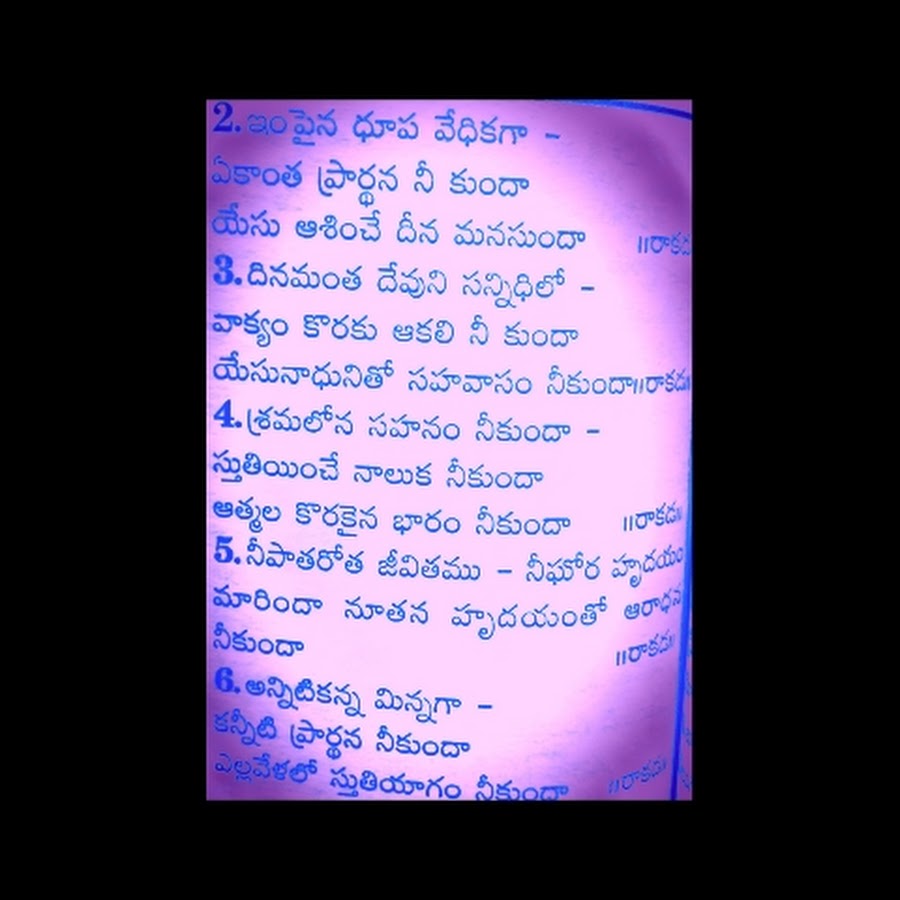 2. ఇంపైన ధూప వేధికగా -
ఏకాంత ప్రార్థన నీ కుందా
యేసు ఆశించే దీన మనసుందా ॥రాకడ
3. దినమంత దేవుని సన్నిధిలో -
వాక్యం కొరకు ఆకలి నీ కుందా
యేసునాధునితో సహవాసం నీకుందా॥రాకడ॥
4. శ్రమలోన సహనం నీకుందా -
స్తుతియించే నాలుక నీకుందా
ఆత్మల కొరకైన భారం నీకుందా ॥రాకడ॥
5. నీపాతరోత జీవితము - నీఘోర హృదయం
మారిందా నూతన హృదయంతో ఆరాధన
నీకుందా ॥రాకడ॥
6. అన్నిటికన్న మిన్నగా -
కన్నీటి ప్రార్థన నీకుందా
ఎల్లవేళలో స్తుతియాగం నీకుందా ॥రాకడ॥